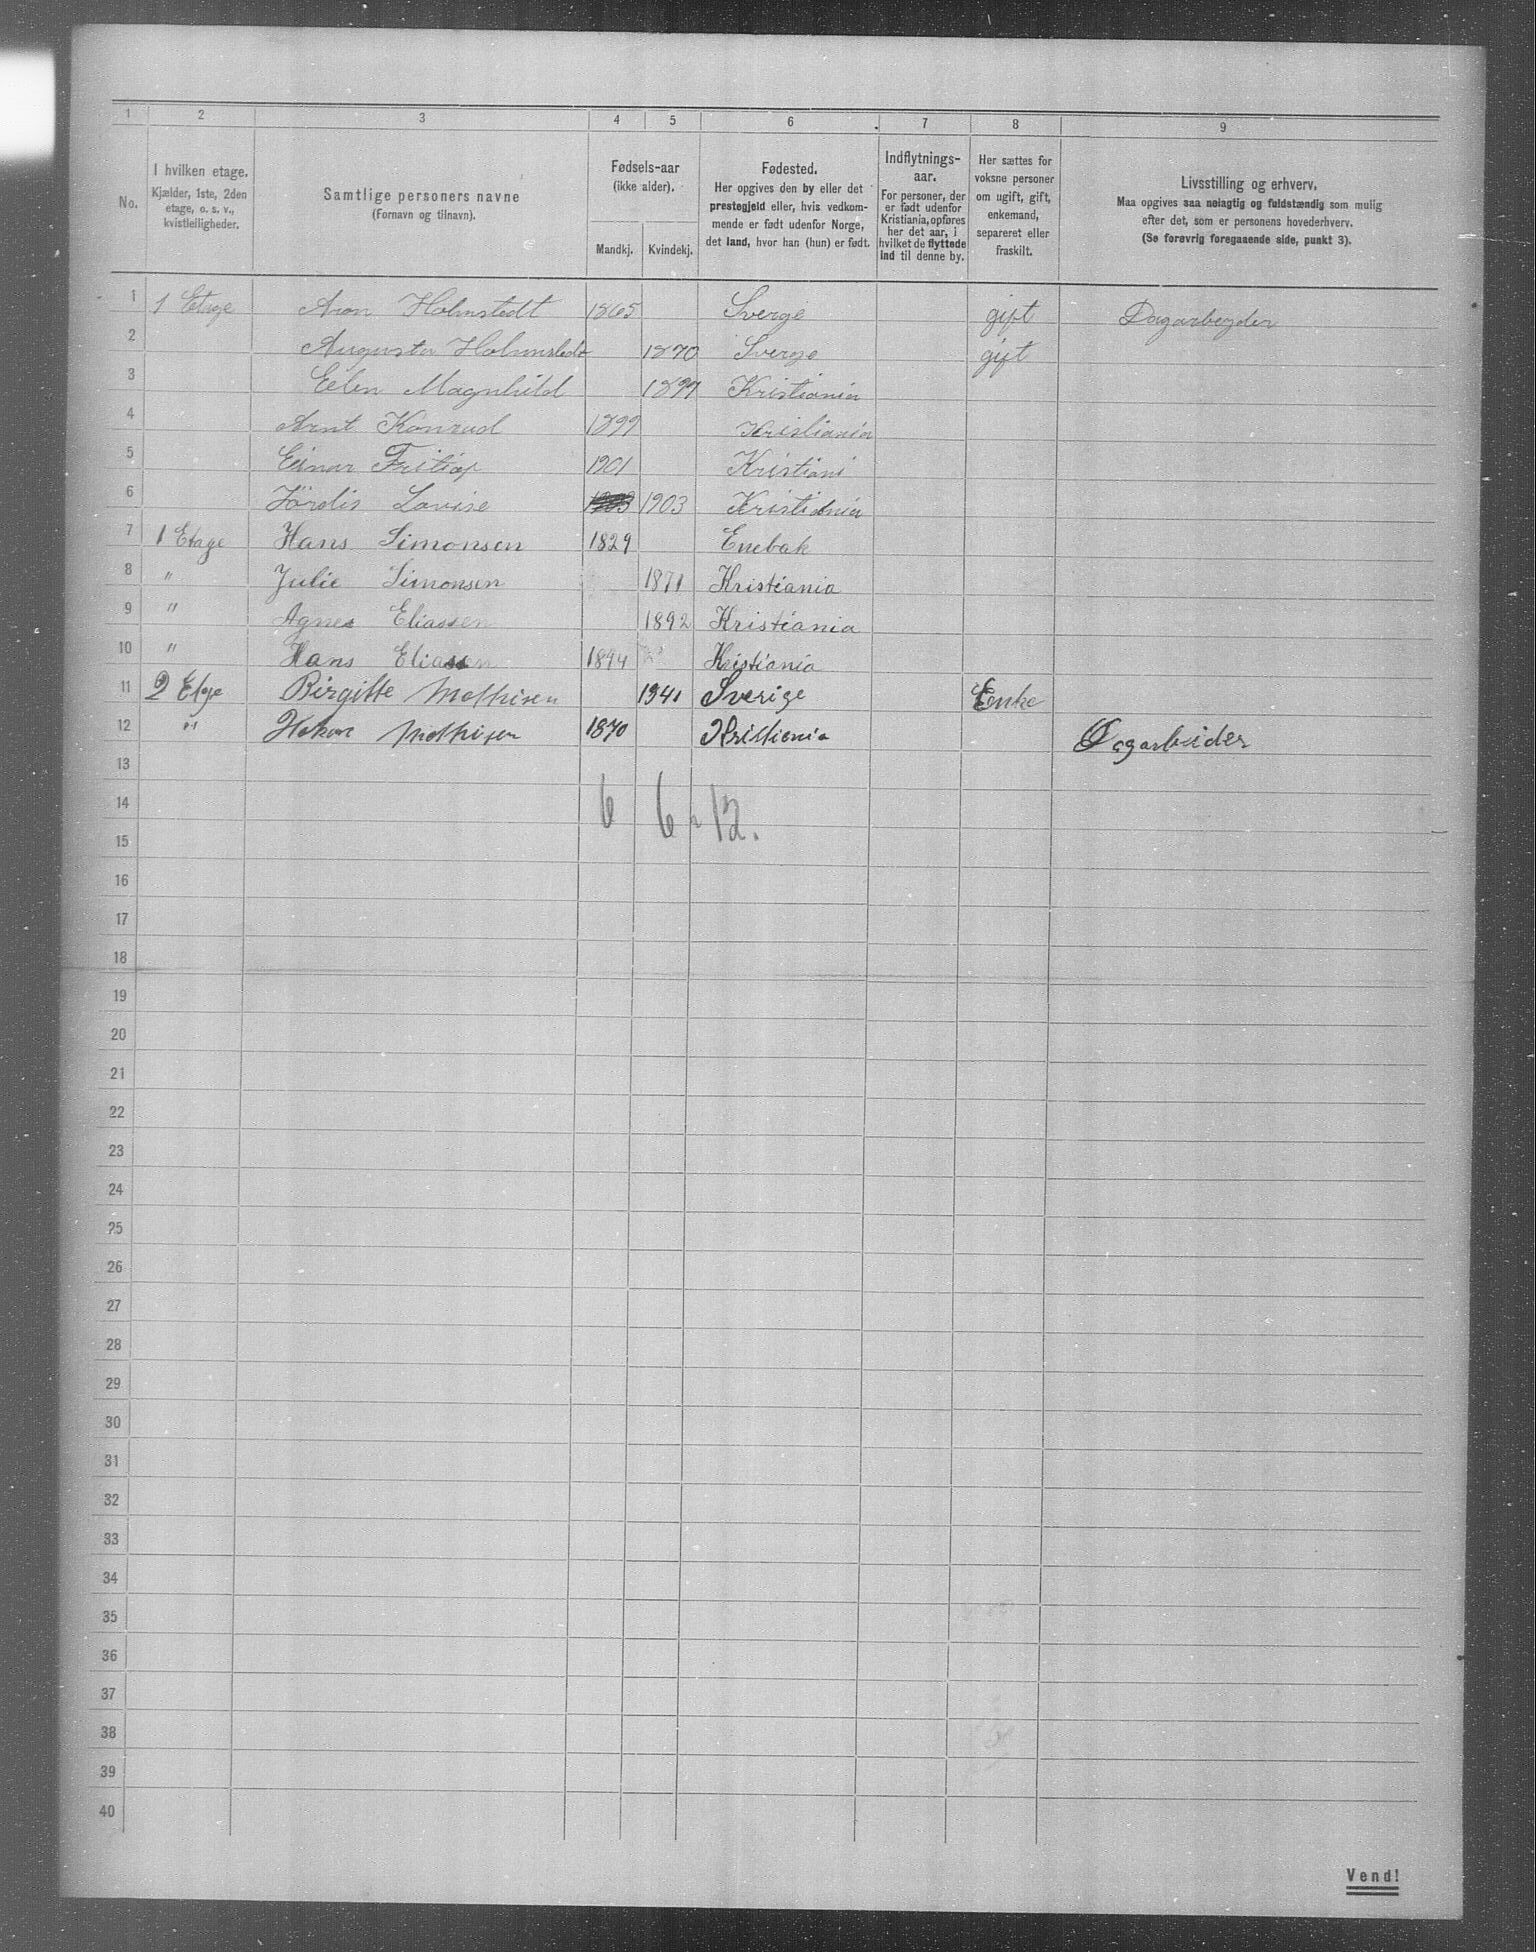 1 2 3 4 5 6 7 8 9
No.
I hvilken etage.
Kjælder, 1ste, 2den
etage, o. s. v.,
kvistleiligheder.
Samtlige personers navne
(Fornavn og tilnavn).
Fødsels-aar
(ikke alder).
Mandkj. Kvindekj.
Fødested.
Her opgives den by eller det
prestegjeld eller, hvis vedkom-
mende er født udenfor Norge,
det land, hvor han (hun) er født.
Indflytnings-
aar.
For personer, der
er født udenfor
Kristiania, opføres
her det aar, i
hvilket de flyttede
ind til denne by.
Her sættes for
voksne personer
om ugift, gift,
enkemand,
separeret eller
fraskilt.
Livsstilling og erhverv.
Maa opgives saa nøiagtig og fuldstændig som mulig
efter det, som er personens hovederhverv.
(Se forøvrig foregaaende side, punkt 3).
1 1 Etage Aron Holmstedt 1865 Sverge gift Dagarbeyder
2 Augusta Holmstedt 1870 Sverge gift
3 Eelen Magnhild 1897 Kristiania
4 Arnt Konrad 1899 Kristiania
5 Einar Fritiof 1901 Kristiani
6 Jørdis Lovise 1903 1903 Kristiania
7 1 Etage Hans Simonsen 1829 Enebak
8 " Julie Simonsen 1871 Kristiania
9 " Agnes Eliassen 1892 Kristiania
10 " Hans Eliassen 1894 Kristiania
11 2 Etge Birgitte Mathisen 1941 Sverige Eenke
12 " Hakon Mathisen 1870 Kristiania Dagarbeider
13
14 6 6 12.
15
16
17
18
19
20
21
22
23
24
25
26
27
28
29
30
31
32
33
34
35
36
37
38
39
40
Vend!